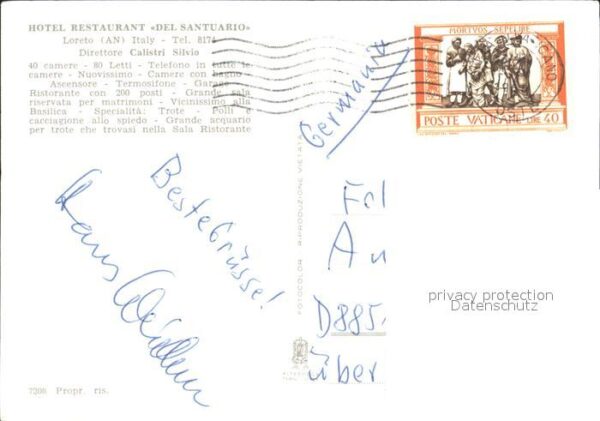 HOTEL RESTAURANT «DEL SANTUARIO»
Loreto (AN) Italy - Tel. 8174
Direttore Calistri Silvio
40 camere - 80 Letti - Telefono in tutte le
camere - Nuovissimo - Camere con bagno
Ascensore - Termosifone - Garage
Ristorante con 200 posti - Grande sala
riservata per matrimoni - Vicinissimo alla
Basilica - Specialità: Trote - Polli e
cacciagione allo spiedo - Grande acquario
per trote che trovasi nella Sala Ristorante
MORTVOS SEPELIRE
POSTE VATICANE LIRE 40
Germania
Beste Grüsse!
Hans
FOTOCOLOR - RIPRODUZIONE VIETATA
Fel
An
D885
über
privacy protection
Datenschutz
7200 Propr. ris.